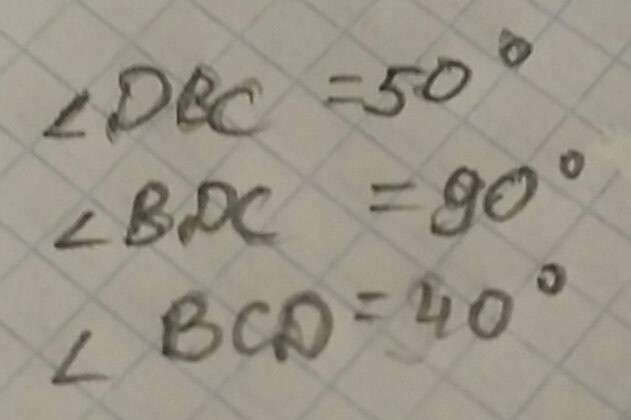 ∠DBC = 50°
∠BDC = 90°
∠BCD = 40°